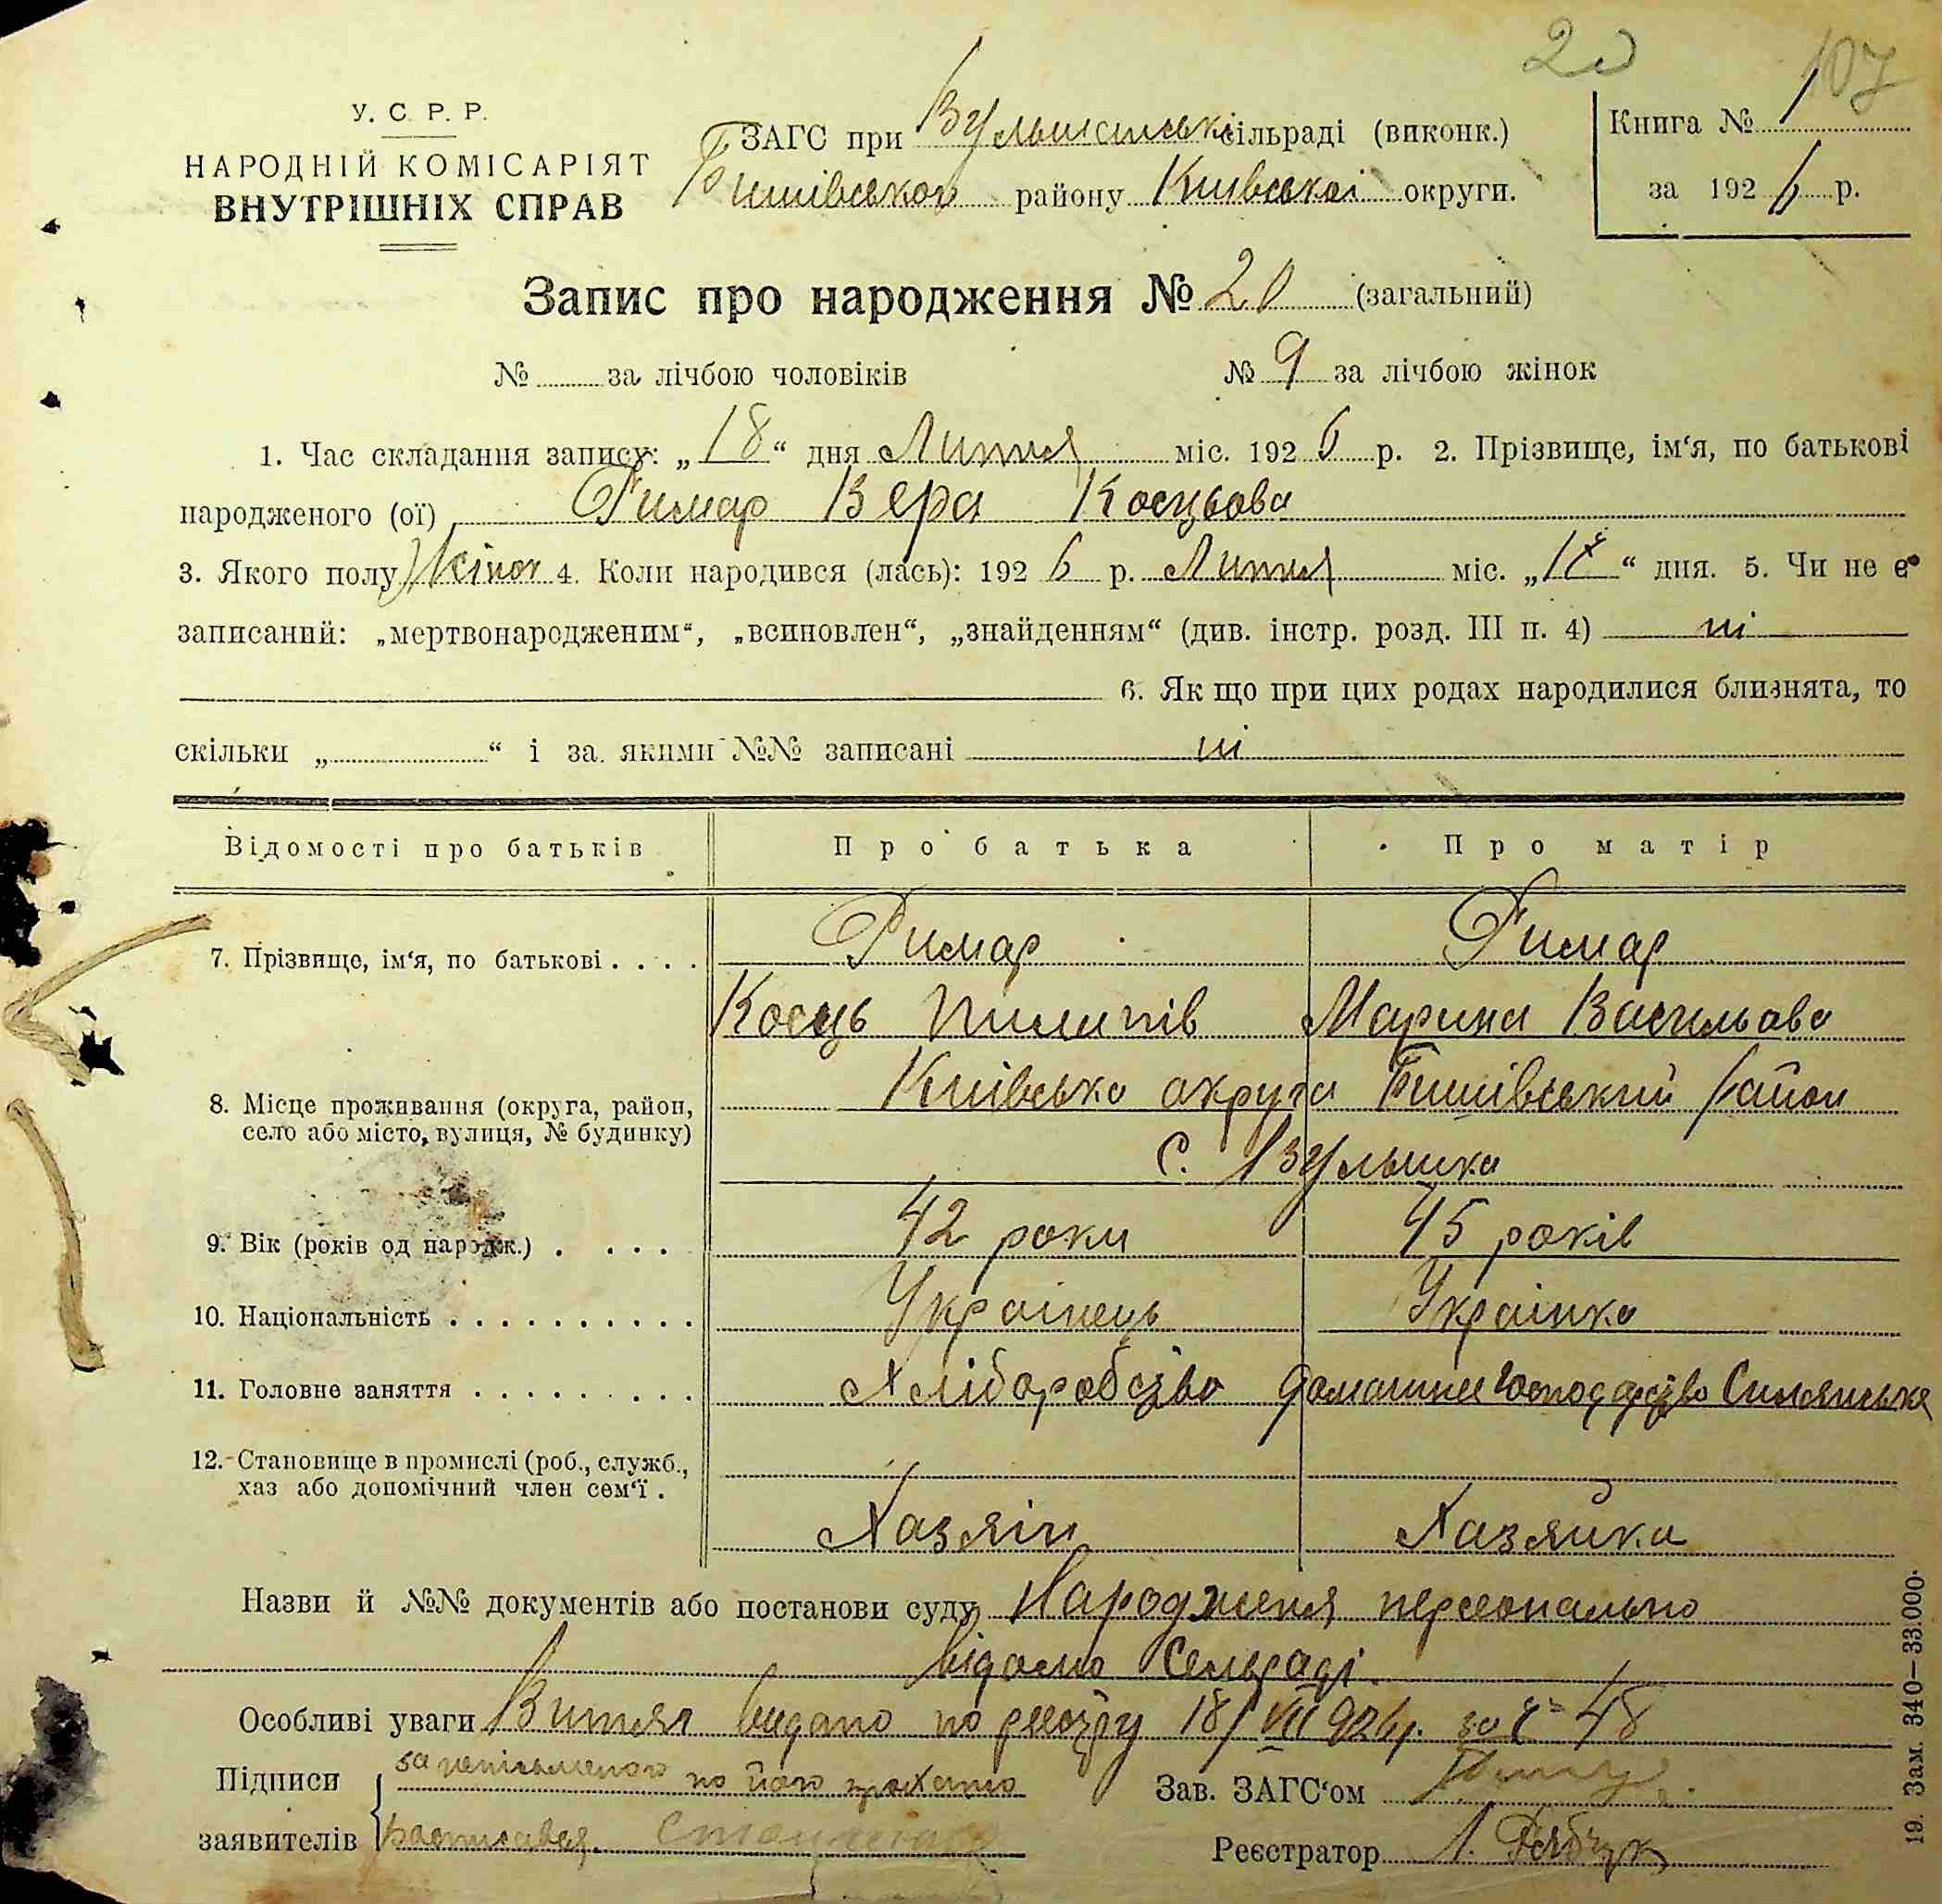 20 107
У. С. Р. Р.
НАРОДНІЙ КОМІСАРІЯТ
ВНУТРІШНІХ СПРАВ
ЗАГС при Вульшанській сільраді (виконк.)
Бишівського району Київської округи.
Книга № 1
за 1926 р.
Запис про народження № 20 (загальний)
№ за лічбою чоловіків № 9 за лічбою жінок
1. Час складання запису: „18“ дня Липня міс. 1926 р. 2. Прізвище, ім‘я, по батькові
народженого (ої) Римар Вера Косцьова
3. Якого полу Жіноч 4. Коли народився (лась): 1926 р. Липня міс. „18“ дня. 5. Чи не є
записаний: „мертвонародженим“, „всиновлен“, „знайденням“ (див. інстр. розд. III п. 4) ні
6. Як що при цих родах народилися близнята, то
скільки „ “ і за якими №№ записані ні
Відомості про батьків Про батька Про матір
7. Прізвище, ім‘я, по батькові . . . . Римар Римар
Косць Пилипів Марина Васильова
8. Місце проживання (округа, район, Київська округа Бишівський район
село або місто, вулиця, № будинку)
с. Вульшка
9. Вік (років од народж.) . . . . 42 роки 45 років
10. Національність . . . . . . . . . . Українець Українка
11. Головне заняття . . . . . . . . . Хліборобство домашнє господарство Силянська
12. Становище в промислі (роб., служб.,
хаз або допомічний член сем‘ї .
Хазяін Хазяйка
Назви й №№ документів або постанови суду Народженя персонально
відомо Сельраді.
Особливі уваги Витяг видано по реєстру 18/VII 926 р. за № 48
Підписи за неписьменого по його проханню
Зав. ЗАГС‘ом
заявителів росписався
Реєстратор Л. Рябчук
19. Зам. 340—33.000.